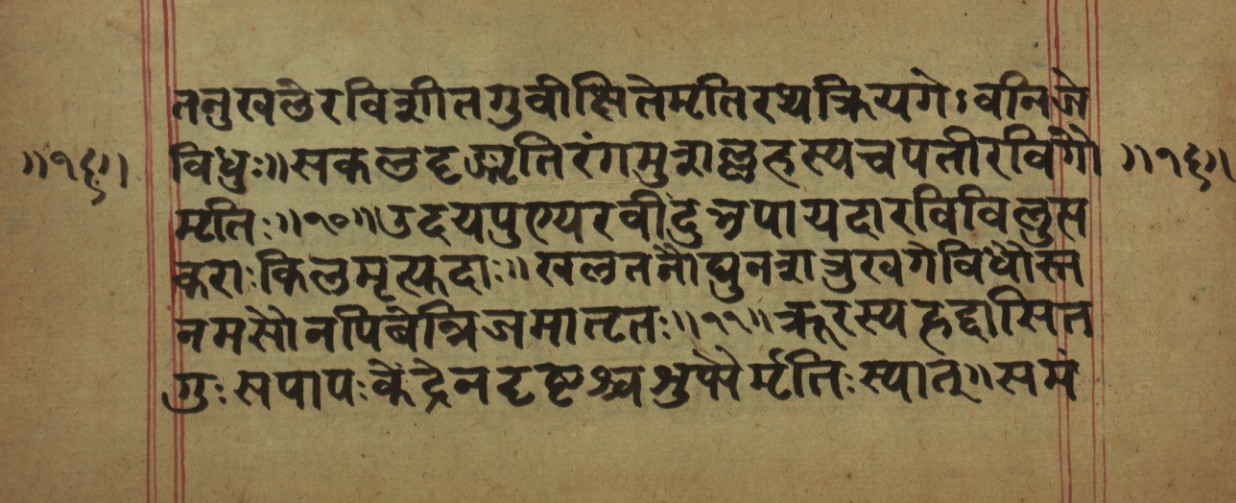 तनुखलेरविशीतगुवीक्षितेमृतिरथक्रियगेऽवनिजे
विधुः॥सकलदृङ्मृतिरंगमुशन्गृहस्यचपतीरविगौ
मृतिः॥१०॥उदयपुण्यरवींदुत्रपायदारविविलुस
कराःकिलमृत्युदाः॥खलतनौद्युनशत्रुखगेविधौस्त
नमसौनपिबेन्निजमातृतः॥११॥क्रूरस्यहृद्दासित
गुःसपापःकेंद्रेनदृष्टश्चशुभैर्मृतिःस्यात्॥समं
॥१६॥
॥१६॥